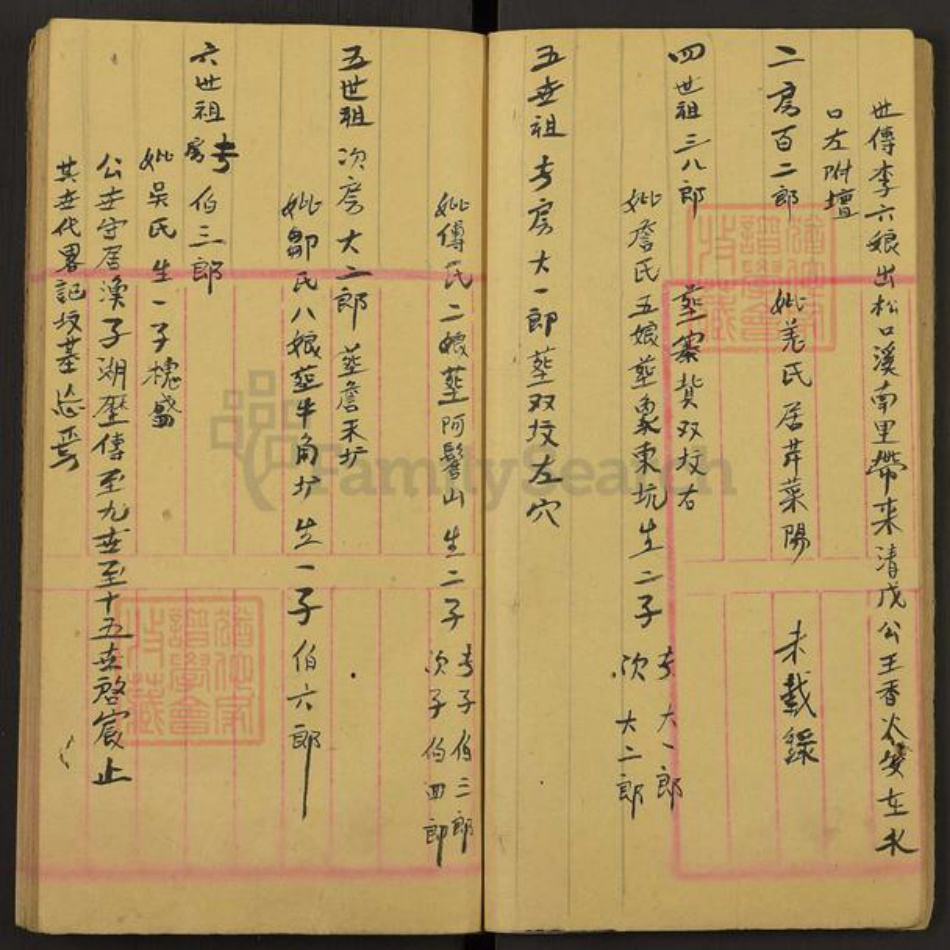 世傳李六娘出松口溪南里帶来清戊公王香火安在水
口左附壇
二房百二郎 妣羌氏居芹菜陽 未載録
四世祖三八郎 塟寨背双坟右
妣詹氏五娘塟象東坑生二子 長大一郎
次大二郎
五世祖長房大一郎塟双坟左穴
妣傅氏二娘塟阿髻山生二子 長子伯三郎
次子伯四郎
五世祖次房大二郎 塟詹禾圹
妣鄒氏八娘塟牛角圹生一子伯六郎
六世祖長房伯三郎
妣吳氏生一子槐盛
公世守居漁子湖歷傳至九世至十五世啓宸止
其世代畧記坟墓忘焉
FamilySearch